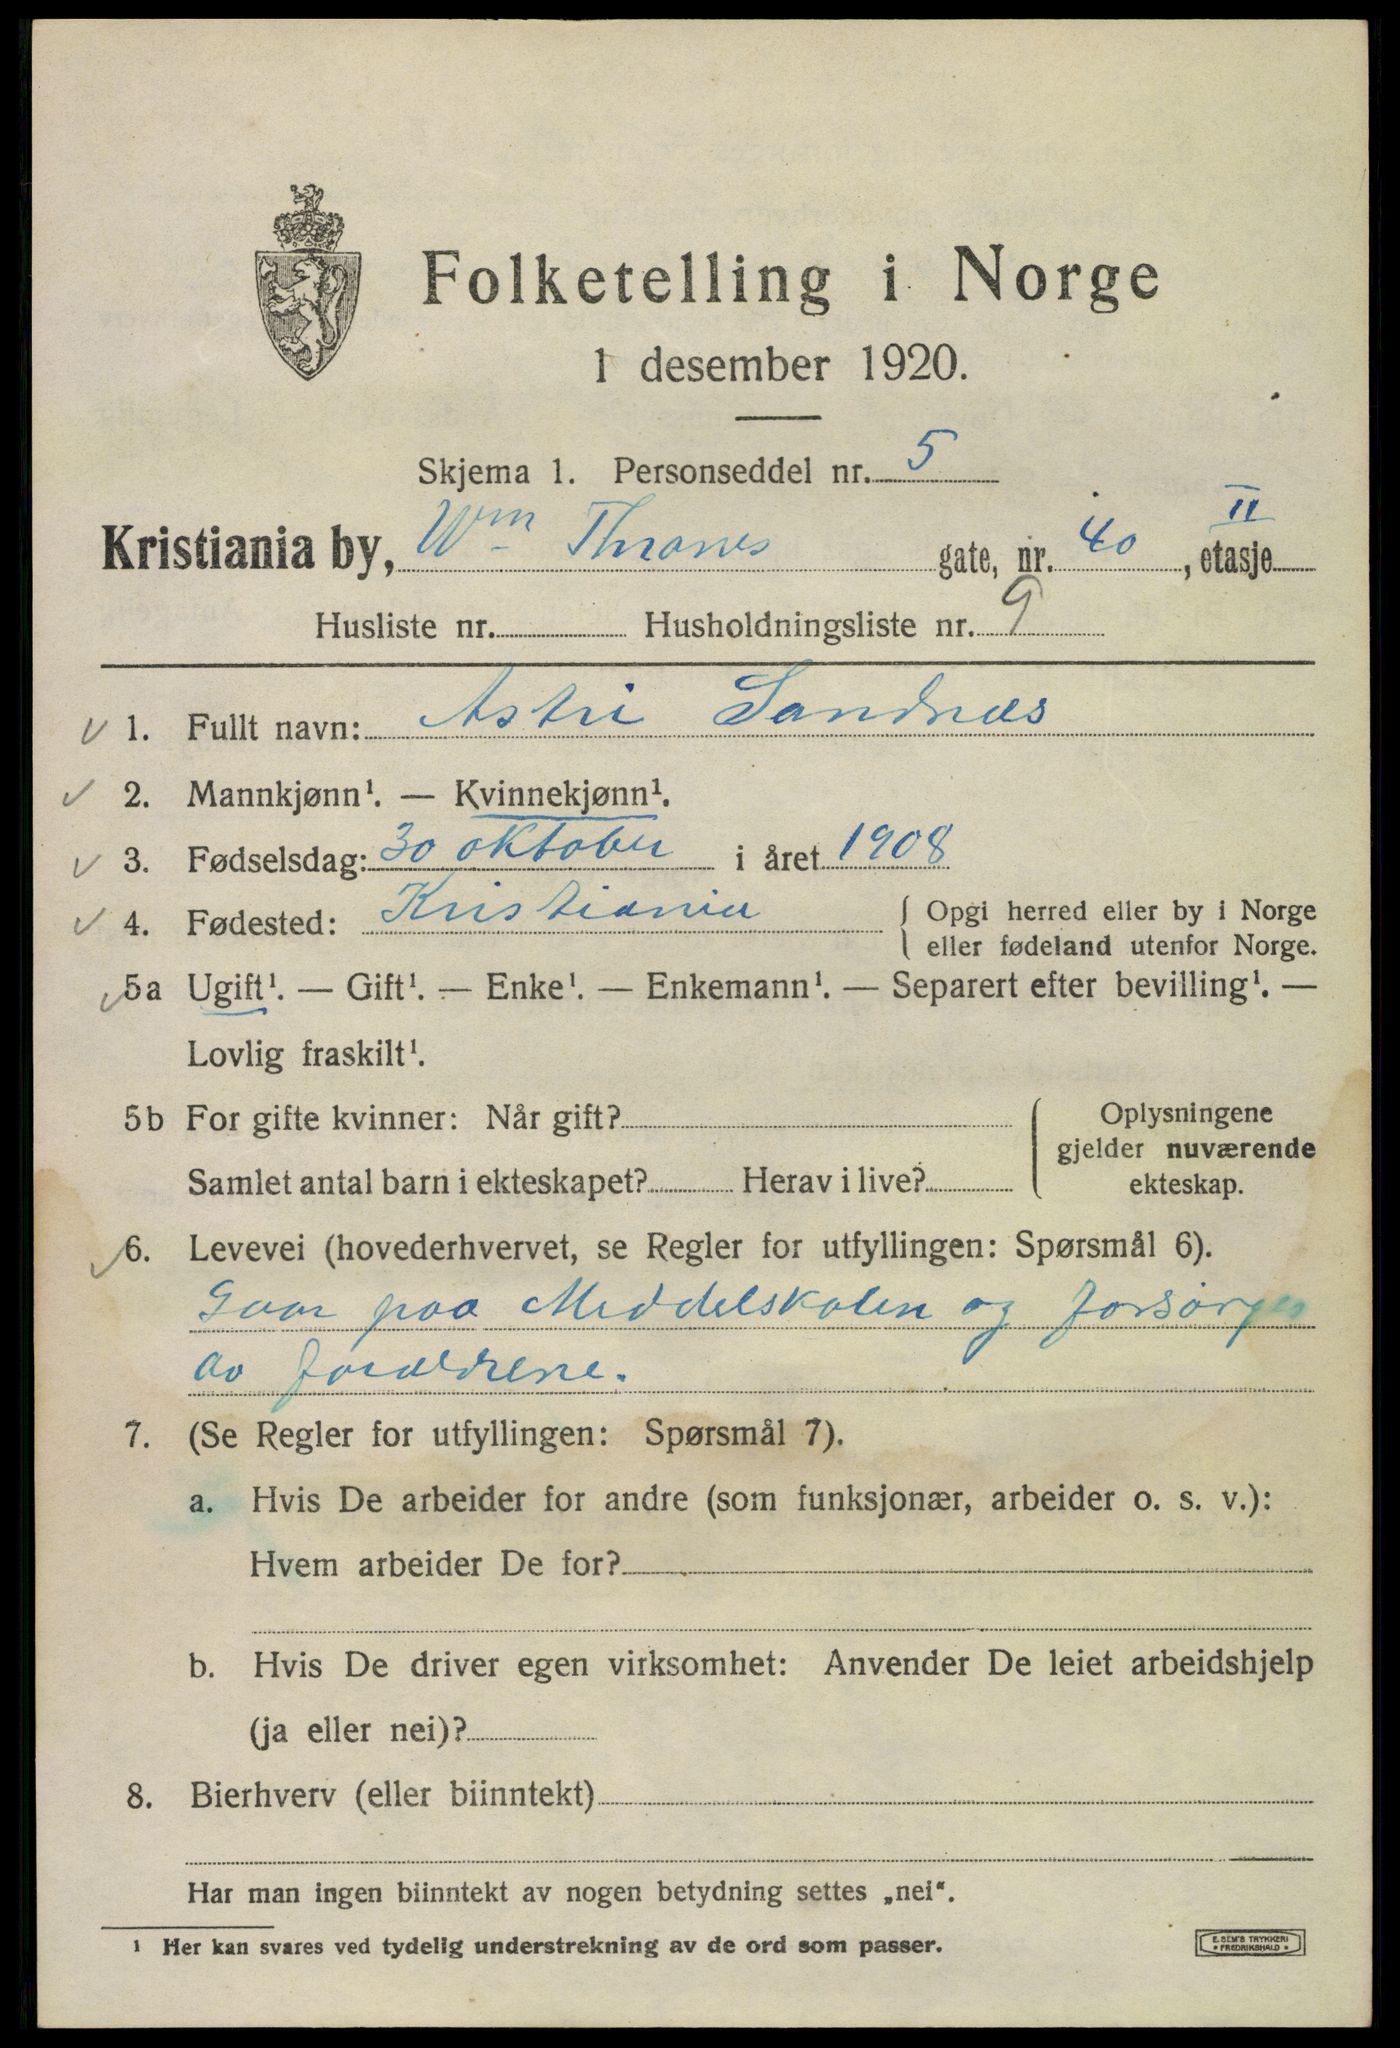 Folketelling i Norge
1 desember 1920.
Skjema 1. Personseddel nr. 5
Kristiania by, Wm Thranes gate, nr. 40, etasje II
Husliste nr. Husholdningsliste nr. 9
1. Fullt navn: Astri Sandnæs
2. Mannkjønn¹. — Kvinnekjønn¹.
3. Fødselsdag: 30 oktober i året 1908
4. Fødested: Kristiania { Opgi herred eller by i Norge
eller fødeland utenfor Norge.
5a Ugift¹. — Gift¹. — Enke¹. — Enkemann¹. — Separert efter bevilling¹. —
Lovlig fraskilt¹.
5b For gifte kvinner: Når gift? Oplysningene
gjelder nuværende
Samlet antal barn i ekteskapet? Herav i live? ekteskap.
6. Levevei (hovederhvervet, se Regler for utfyllingen: Spørsmål 6).
Gaar paa Middelskolen og forsörges
av forældrene.
7. (Se Regler for utfyllingen: Spørsmål 7).
a. Hvis De arbeider for andre (som funksjonær, arbeider o. s. v.):
Hvem arbeider De for?
b. Hvis De driver egen virksomhet: Anvender De leiet arbeidshjelp
(ja eller nei)?
8. Bierhverv (eller biinntekt)
Har man ingen biinntekt av nogen betydning settes „nei“.
¹ Her kan svares ved tydelig understrekning av de ord som passer.
E. SEM'S TRYKKERI
• FREDRIKSHALD •